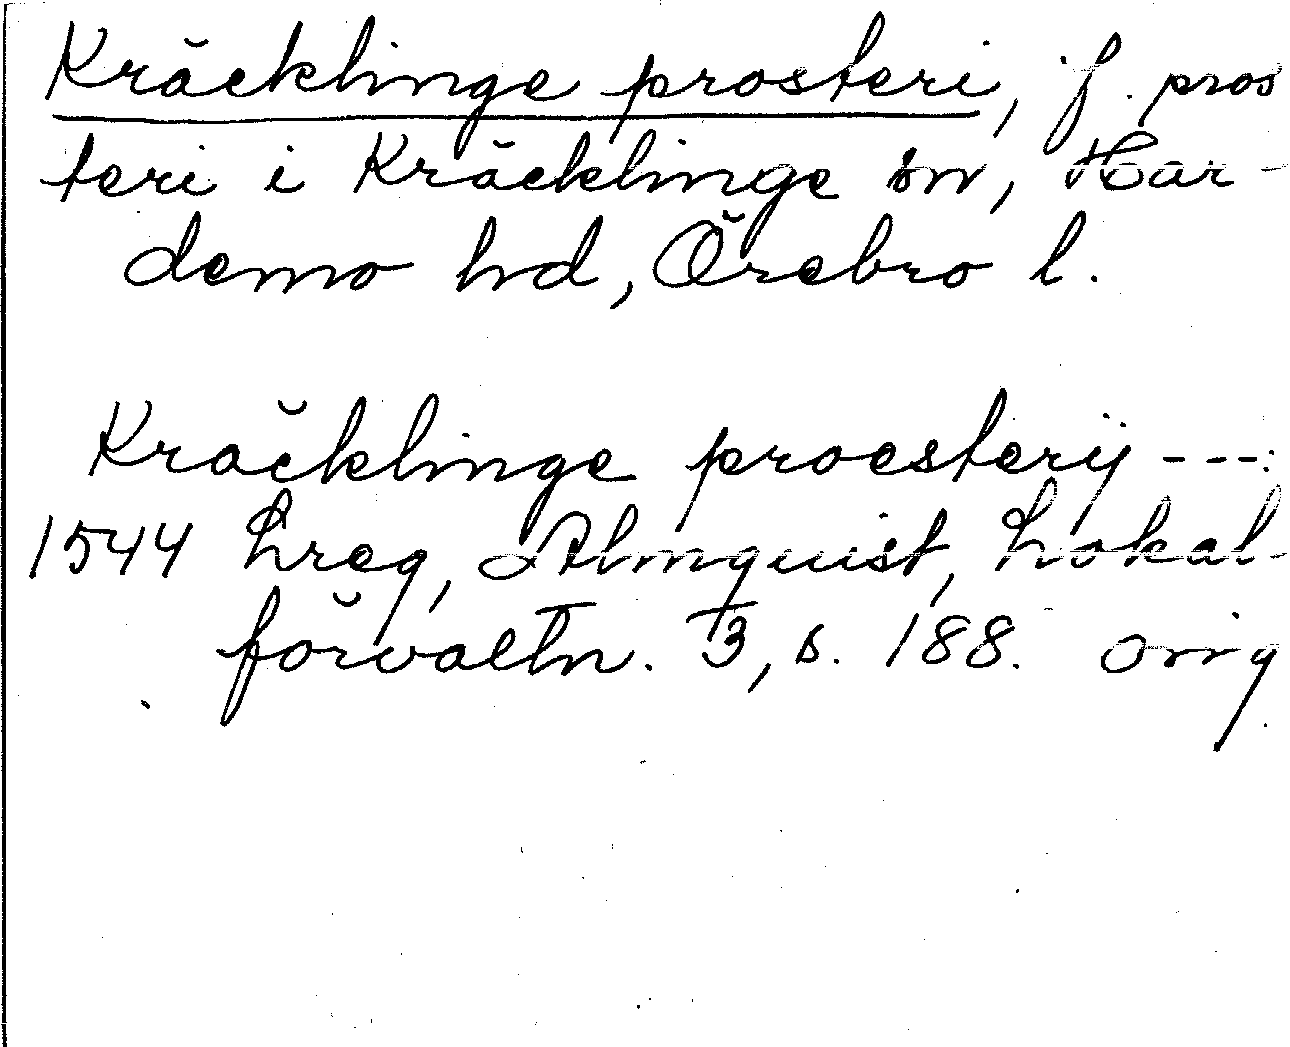 Kräcklinge prosteri, f. pros
teri i Kräcklinge sn, Har-
demo hd, Örebro l.
Kräcklinge proestery ---:
1544 Lreg, Almquist, Lokal-
förvaltn. 3, s. 188. orig